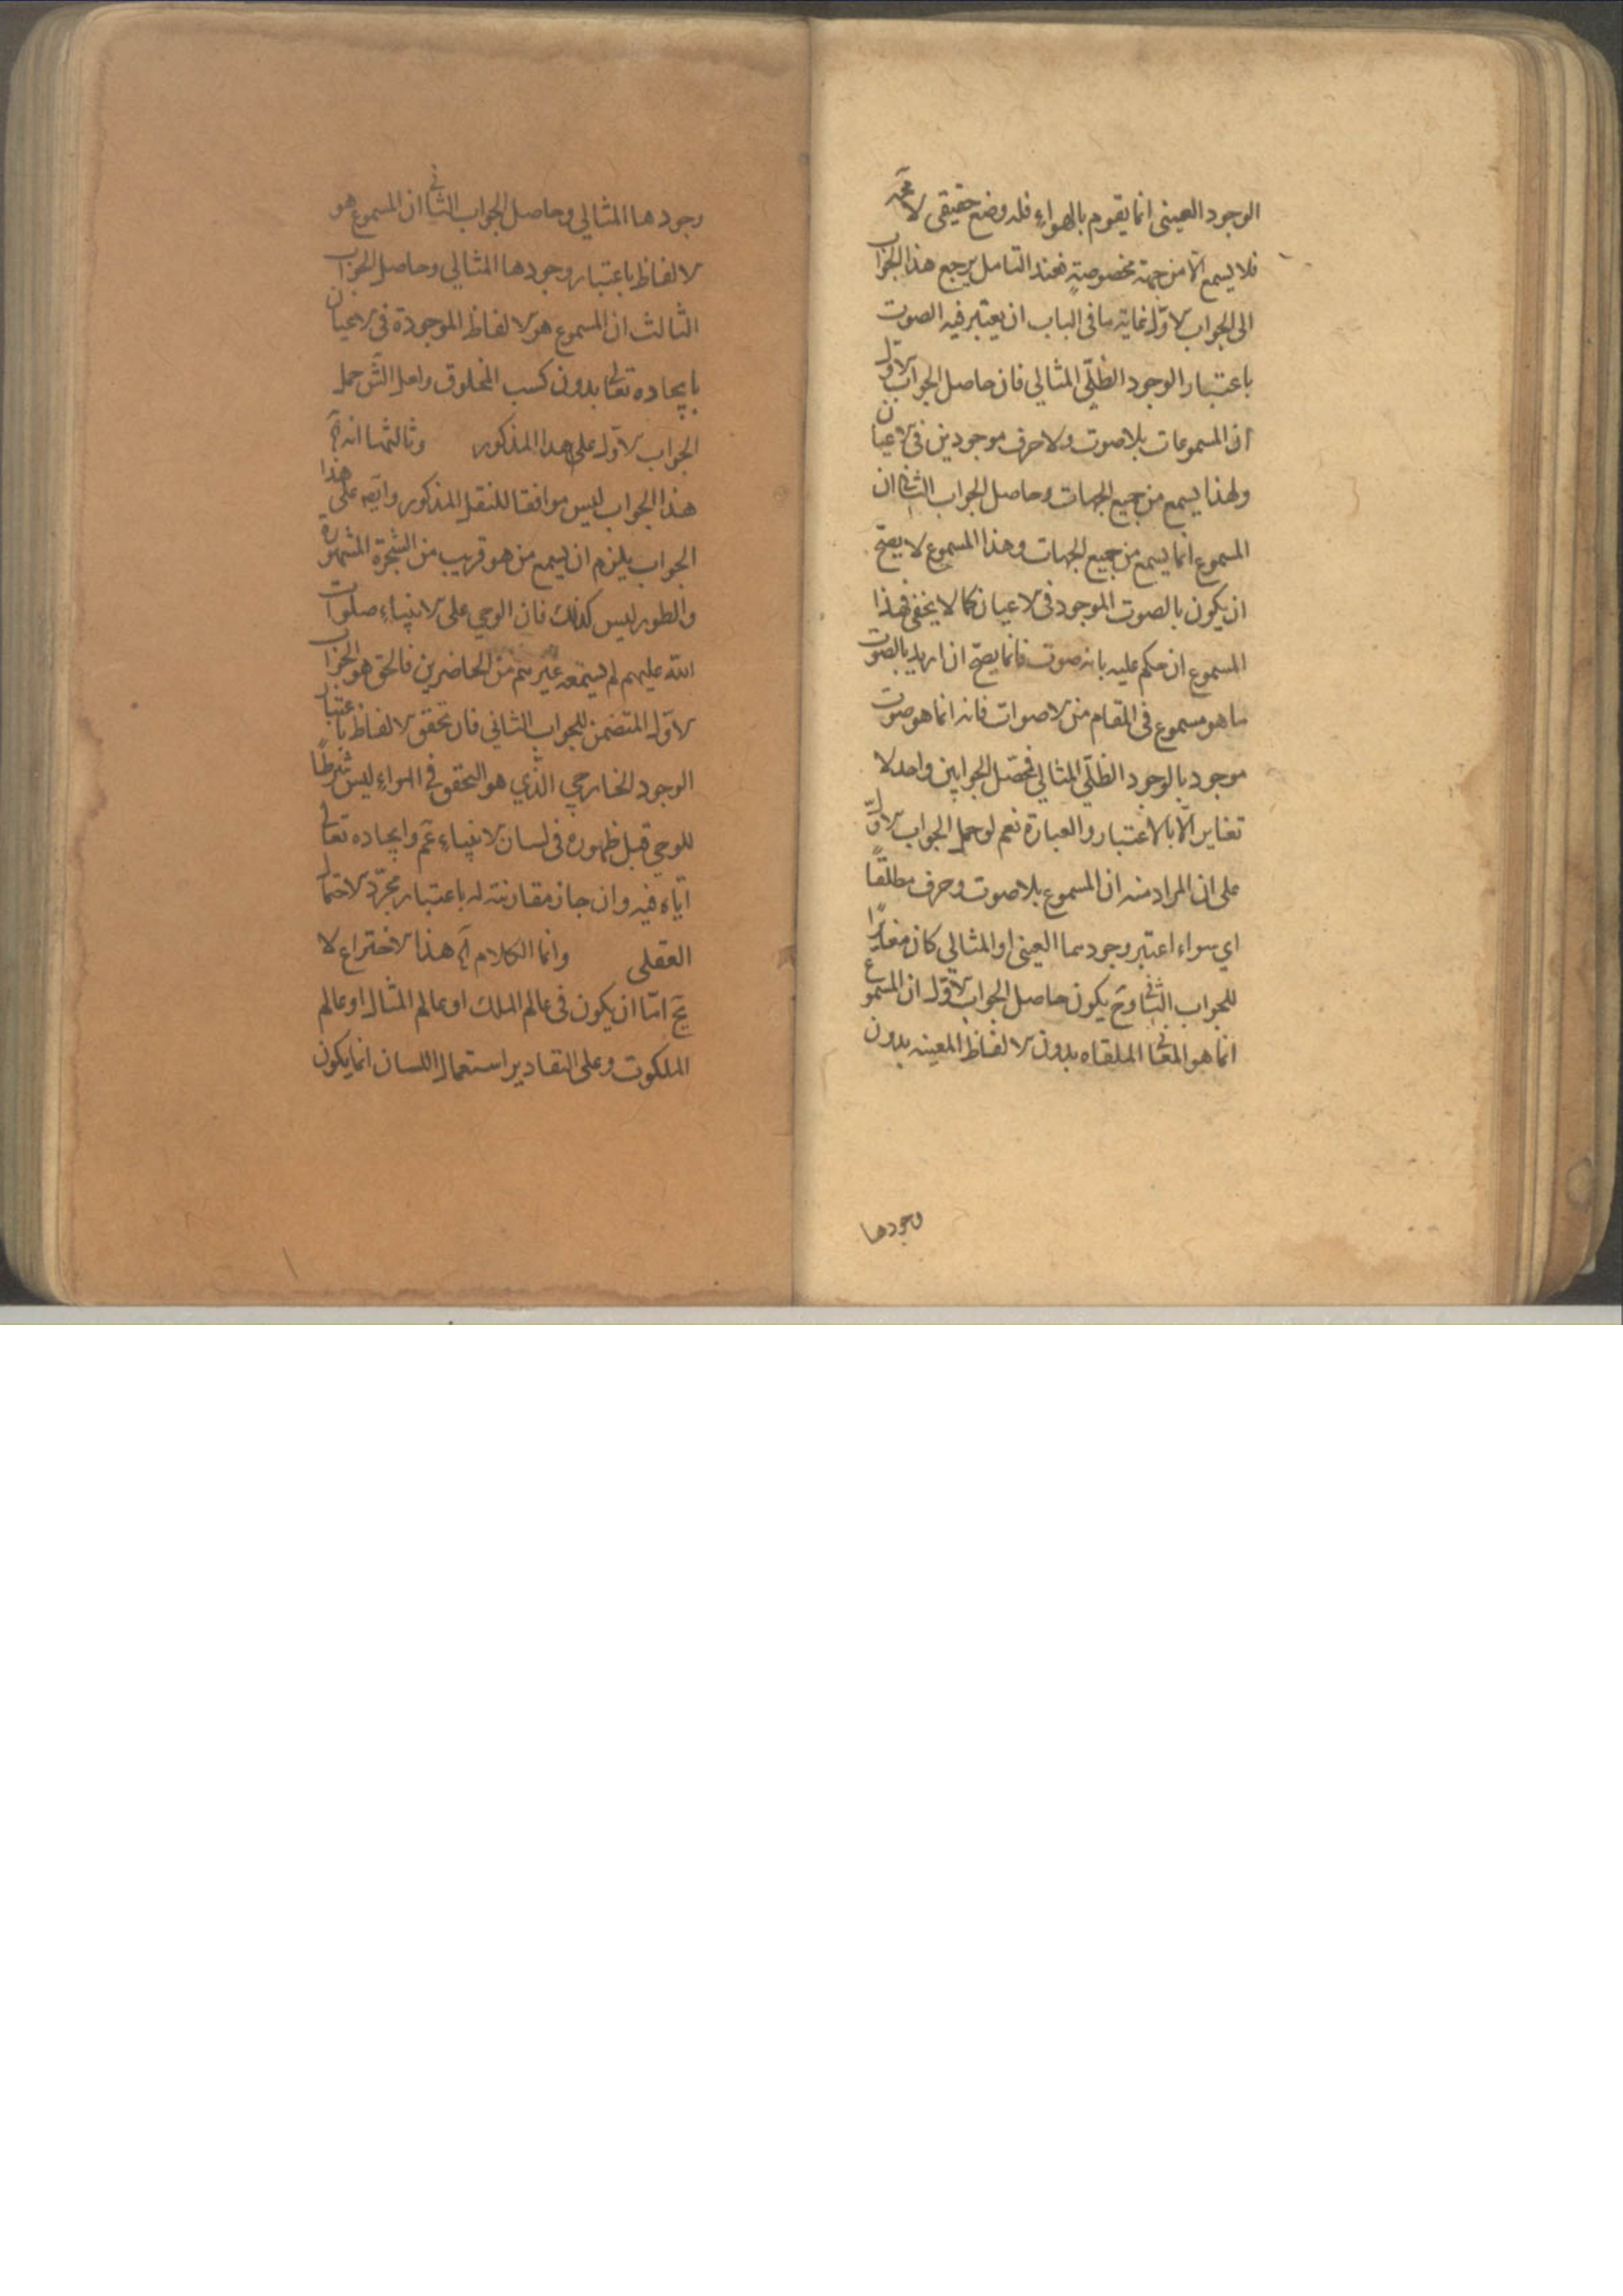 الوجود العيني انما يقوم بالهواء فله وضع حقيقى لا محة
فلا يسمع الّا من جهة مخصوصةٍ فعند التامل يرجع هذا الجواب
الى الجواب الاوّل غاية ما فى الباب ان يعتبر فيه الصوت
باعتبار الوجود الظلّي المثالي فان حاصل الجواب الاوّل
ان المسموعات بلا صوت ولا حرف موجودين فى الاعيان
ولهذا يسمع من جميع الجهات وحاصل الجواب الثانى ان
المسموع انما يسمع من جميع الجهات وهذا المسموع لا يصحّ
ان يكون بالصوت الموجود فى الاعيان كما لا يخفى فهذا
المسموع ان حكم عليه بانه صوت فانما يصحّ ان اريد بالصوت
ما هو مسموع فى المقام من الاصوات فانه انما هو صوت
موجود بالوجود الظلّي المثالي فحصّل الجوابين واحد لا
تغاير الّا بالاعتبار والعبارة نعم لو حمل الجواب الاوّل
على ان المراد منه ان المسموع بلا صوت وحرف مطلقًا
اي سواء اعتبر وجودهما العيني او المثالي كان مغايرًا
للجواب الثانى وحَ يكون حاصل الجواب الاوّل ان المسموع
انما هو المعانى الملقاه بدون الالفاظ المعينه بدون
وجودها
وجودها المثالي وحاصل الجواب الثانى ان المسموع هو
الالفاظ باعتبار وجودها المثالي وحاصل الجواب
الثالث ان المسموع هو الالفاظ الموجودة فى الاعيان
بايجاده تعالى بدون كسب المخلوق ولعل الشَ حمل
الجواب الاوّل على هذا المذكور وثالثهما انه آه
هذا الجواب ليس موافقا للنقل المذكور وايضه على هذا
الجواب يلزم ان يسمع من هو قريب من الشجرة المشهورة
والطور ليس كذلك فان الوحي على الانبياء صلوات
الله عليهم لم يستمعه غيرهم من الحاضرين فالحق هو الجواب
الاوّل المتضمن للجواب الثاني فان تحقق الالفاظ باعتبار
الوجود الخارجي الّذي هو التحقق فى الهواء ليس شرطًا
للوحي قبل ظهوره فى لسان الانبياء عَم وايجاده تعالى
ايّاه فيه وان جاز مقارنته له باعتبار مجرّد الاحتمال
العقلى وانما الكلام آه هذا الاختراع لا
يخ امّا ان يكون فى عالم الملك او عالم المثال او عالم
الملكوت وعلى التقادير استعمال اللسان انما يكون